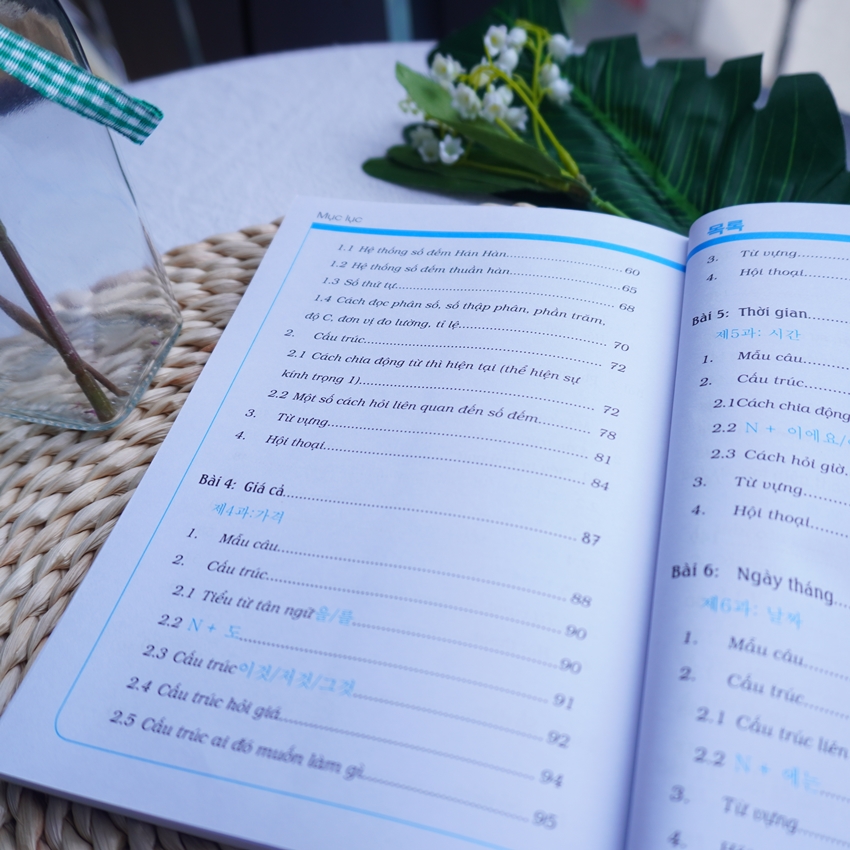 Mục lục
1.1 Hệ thống số đếm Hán Hàn........ 60
1.2 Hệ thống số đếm thuần hàn........ 65
1.3 Số thứ tự........ 68
1.4 Cách đọc phân số, số thập phân, phần trăm,
độ C, đơn vị đo lường, tỉ lệ........ 70
2. Cấu trúc........ 72
2.1 Cách chia động từ thì hiện tại (thể hiện sự
kính trọng 1)........ 72
2.2 Một số cách hỏi liên quan đến số đếm........ 78
3. Từ vựng........ 81
4. Hội thoại........ 84
Bài 4: Giá cả........ 87
제4과:가격
1. Mẫu câu........ 88
2. Cấu trúc........ 90
2.1 Tiểu từ tân ngữ 을/를........ 90
2.2 N + 도........ 91
2.3 Cấu trúc 이것/저것/그것........ 92
2.4 Cấu trúc hỏi giá........ 94
2.5 Cấu trúc ai đó muốn làm gì........ 95
목록
3. Từ vựng........
4. Hội thoại........
Bài 5: Thời gian........
제5과: 시간
1. Mẫu câu........
2. Cấu trúc........
2.1 Cách chia động
2.2 N + 이에요/
2.3 Cách hỏi giờ.
3. Từ vựng........
4. Hội thoại........
Bài 6: Ngày tháng........
제6과: 날짜
1. Mẫu câu........
2. Cấu trúc........
2.1 Cấu trúc liên
2.2 N + 에는........
3. Từ vựng........
4.